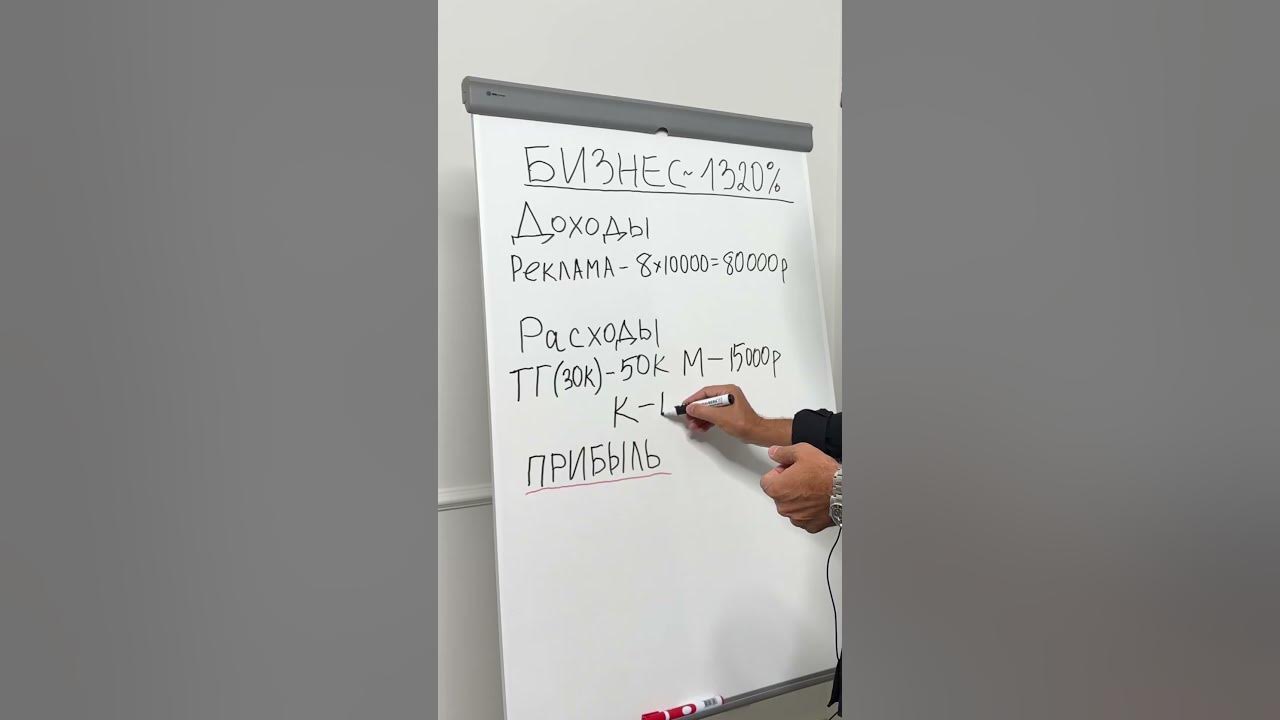 БИЗНЕС ~ 1320%
Доходы
РЕКЛАМА - 8x10000 = 80000р
Расходы
ТГ(30К) - 50К М - 15000р
К -
ПРИБЫЛЬ